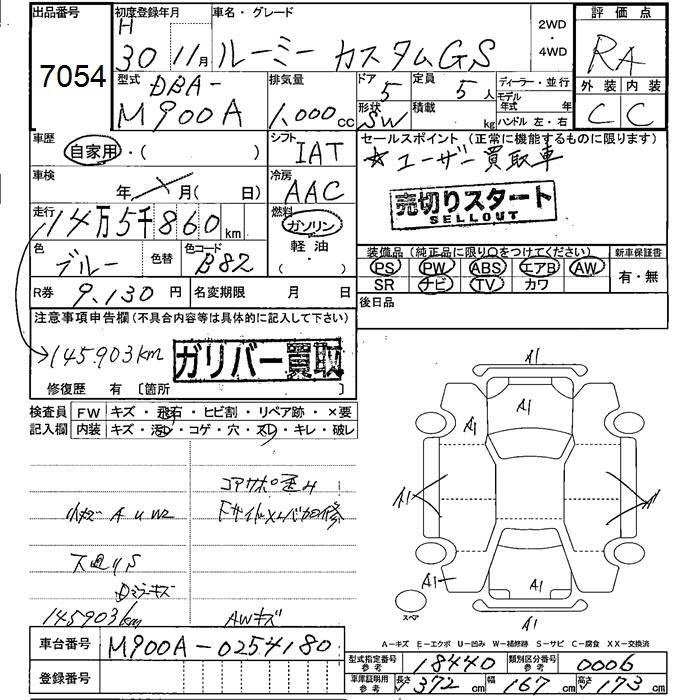 出品番号 初度登録年月 車名・グレード 評価点
7054 H 30 11月 ルーミー カスタムGS 2WD・4WD RA
型式 DBA-M900A 排気量 1,000cc ドア 5 定員 5人 ディーラー・並行
形状 SW 積載 kg モデル年式 年 ハンドル 左・右
外装 内装
C C
車歴 自家用・( ) シフト IAT
セールスポイント (正常に機能するものに限ります)
☆ユーザー買取車
車検 年 月( 日) 冷房 AAC
売切りスタート
SELLOUT
走行 14万5千860km 燃料 ガソリン・軽油・( )
色 ブルー 色替 色コード B82
装備品 (純正品に限り○をつけてください) 新車保証書
PS PW ABS エアB AW 有・無
SR ナビ TV カワ
R券 9,130円 名変期限 月 日
後日品
注意事項申告欄 (不具合内容等は具体的に記入して下さい)
145,903km ガリバー買取
修復歴 有 〔箇所 〕
検査員記入欄 FW キズ・飛石・ヒビ割・リペア跡・×要
内装 キズ・汚レ・コゲ・穴・スレ・キレ・破レ
コアサポ歪み
小キズ A U W2
ス廻りS
Dミラーキズ
145903km AWキズ
A1
A1
A1
A1 A1
A1 A1
A1
スペア
A-キズ E-エクボ U-凹み W-補修跡 S-サビ C-腐食 XX-交換済
車台番号 M900A-0254180
登録番号
型式指定番号 参考 18440 類別区分番号 参考 0006
車庫証明用 参考 長さ 372cm 幅 167cm 高さ 173cm